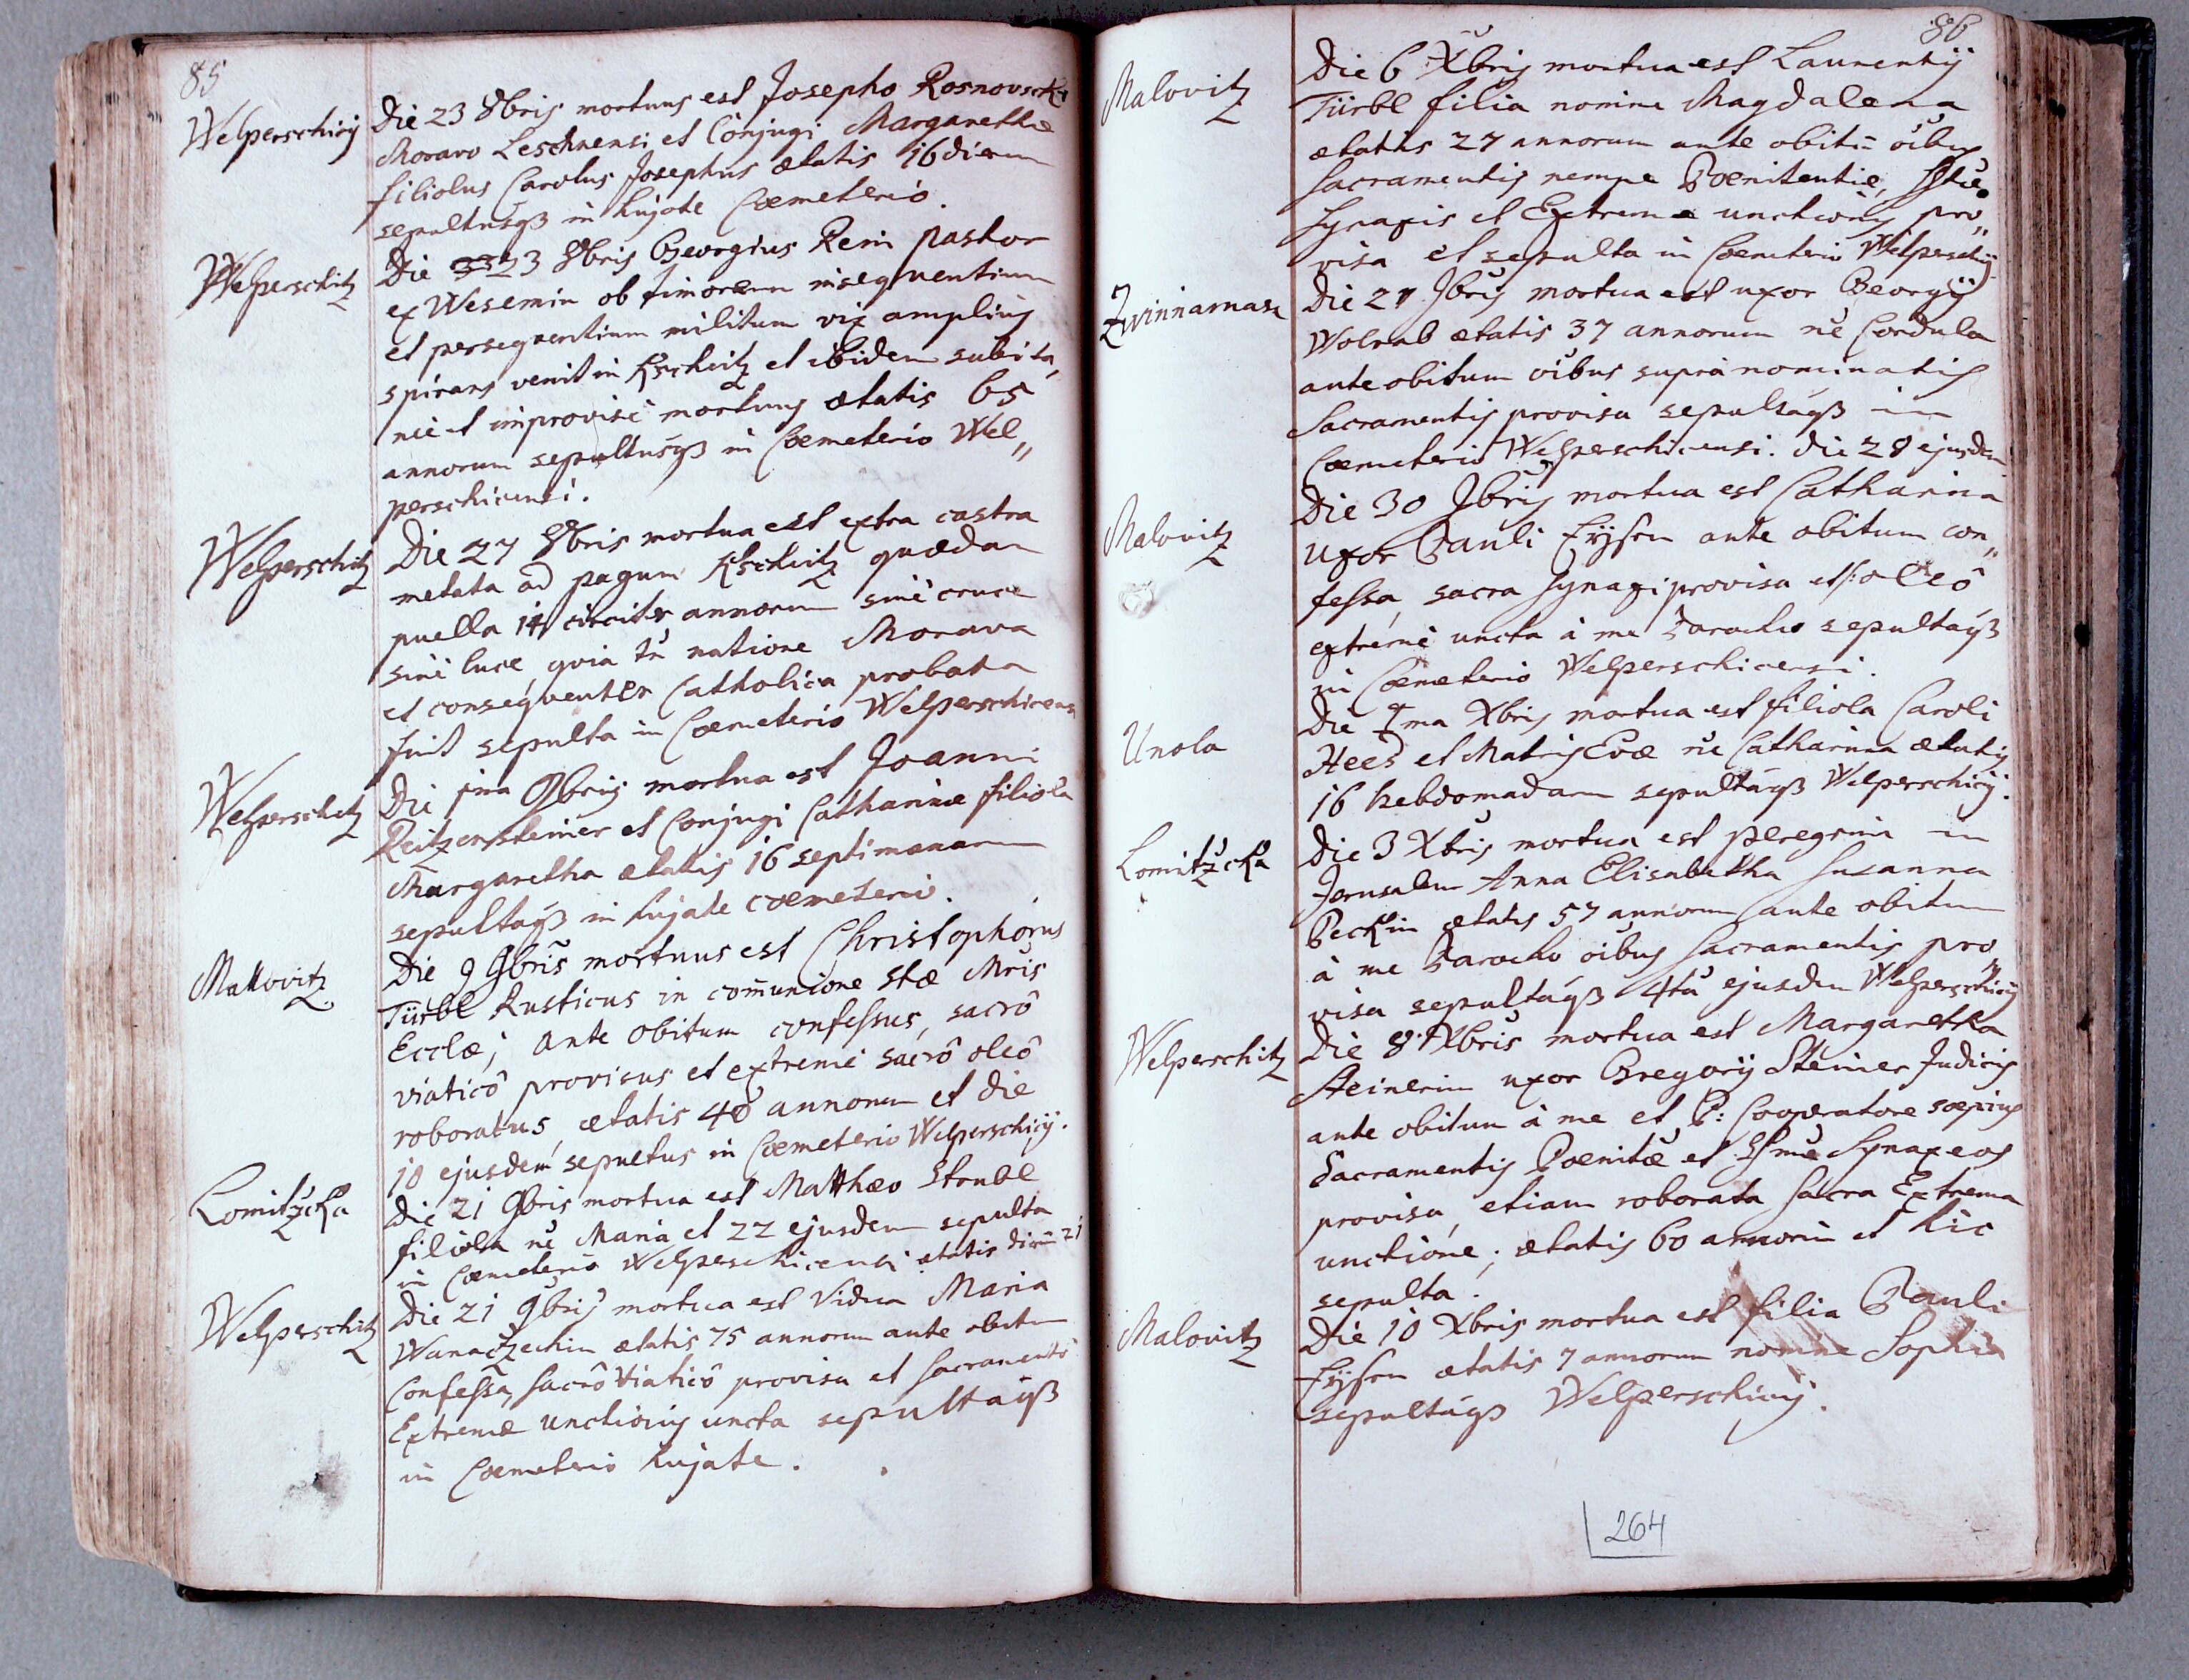 85
Welperschicÿ
Die 23 8bris mortuus est Josepho Rosnovsckÿ
Moravo Leschnensi et Conjugi Margarethæ
filiolus Carolus Josephus ætatis 16 dierum
sepultusqß in hujate Cœmeterio.
Welperschitz
Die 23 8bris Georgius Rem pastor
ex Wesemin ob timorem insequentium
et persequentium militum vix amplius
spirans venit in Kscheitz et ibidem subita,
nie et improvisè mortuus ætatis 65
annorum sepultusqß in Cœmeterio Wel„
perschicensi.
Welperschitz
Die 27 8bris mortua est extra castra
metata ad pagum Kscheitz quædam
puella 14 circiter annorum sinè cruce
sinè luce, quia tñ natione Morava
et conseqventer Catholica probata
fuit sepulta in Cœmeterio Welperschicensi
Welperschitz
Die 1ma 9bris mortua est Joanni
Reitzensteiner et Conjugi Catharinæ filiola
Margaretha ætatis 16 septimanarum
sepultaqß in hujate cœmeterio.
Mallovitz
Die 9 9bris mortuus est Christophorus
Türbl Rusticus in com̄unione Stæ Mr̃is
Ecclæ; ante obitum confessus, sacrô
viaticô provisus et extremè sacrô oleô
roboratus, ætatis 40 annorum et die
10 ejusdem sepultus in Cœmeterio Welperschicÿ.
Lomitzcka
Die 21 9bris mortua est Matthæo Strubl
filiola nē Maria et 22 ejusdem sepulta
in Cœmeterio Welperschicensi ætatis dierũ 21
Welperschitz
Die 21 9bris mortua est Vidua Maria
Wanaczechin ætatis 75 annorum ante obitum
Confessa, sacrô Viaticô provisa et sacramentô
Extremæ unctionis uncta sepultaqß
in Cœmeterio hujate.
86
Malovitz
Die 6 Xbris mortua est Laurentÿ
Türbl filia nomine Magdalena
ætatis 27 annorum ante obitũ oibus
sacramentis nempe Pœnitentiæ, Sstæ
Synaxis et Extremæ unctionis pro„
visa et sepulta in Cœmeterio Welperschicÿ
Zwinnamasz
Die 27 9bris mortua est uxor Georgÿ
Wolrab ætatis 37 annorum nē Cordula
ante obitum oibus supra nominatis
Sacramentis provisa sepultaqß in
Cœmeterio Welperschicensi. die 28 ejusdem
Malovitz
Die 30 9bris mortua est Catharina
Uxor Pauli Eÿsen ante obitum con„
fessa, sacra synaxi provisa et s: oleô
extremè uncta à me Parocho sepultaqß
in Cœmeterio Welperschicensi.
Unola
Die 1ma Xbris mortua est filiola Caroli
Hees et Matris Evæ nē Catharina ætatis
16 hebdomadarum sepultaqß Welperschicÿ.
Lomitzcka
Die 3 Xbris mortua est peregrina in
Jerusalem Anna Elisabetha Susanna
Peckin ætatis 57 annorum ante obitum
à me Parocho oibus sacramentis pro
visa sepultaqß 4ta ejusdem Welperschicÿ
Welperschitz
Die 8 Xbris mortua est Margaretha
Steinerin uxor Gregorÿ Steiner Judicis
ante obitum à me et P: Cooperatore sæpius
Sacramentis Pœnitæ et Ssmæ Synaxeos
provisa, etiam roborata sacra Extrema
unctione; ætatis 60 annorũ et hic
sepulta.
Malovitz
Die 10 Xbris mortua est filia Pauli
Eÿsen ætatis 7 annorum nomine Sophia
sepultaqß Welperschicÿ.
264